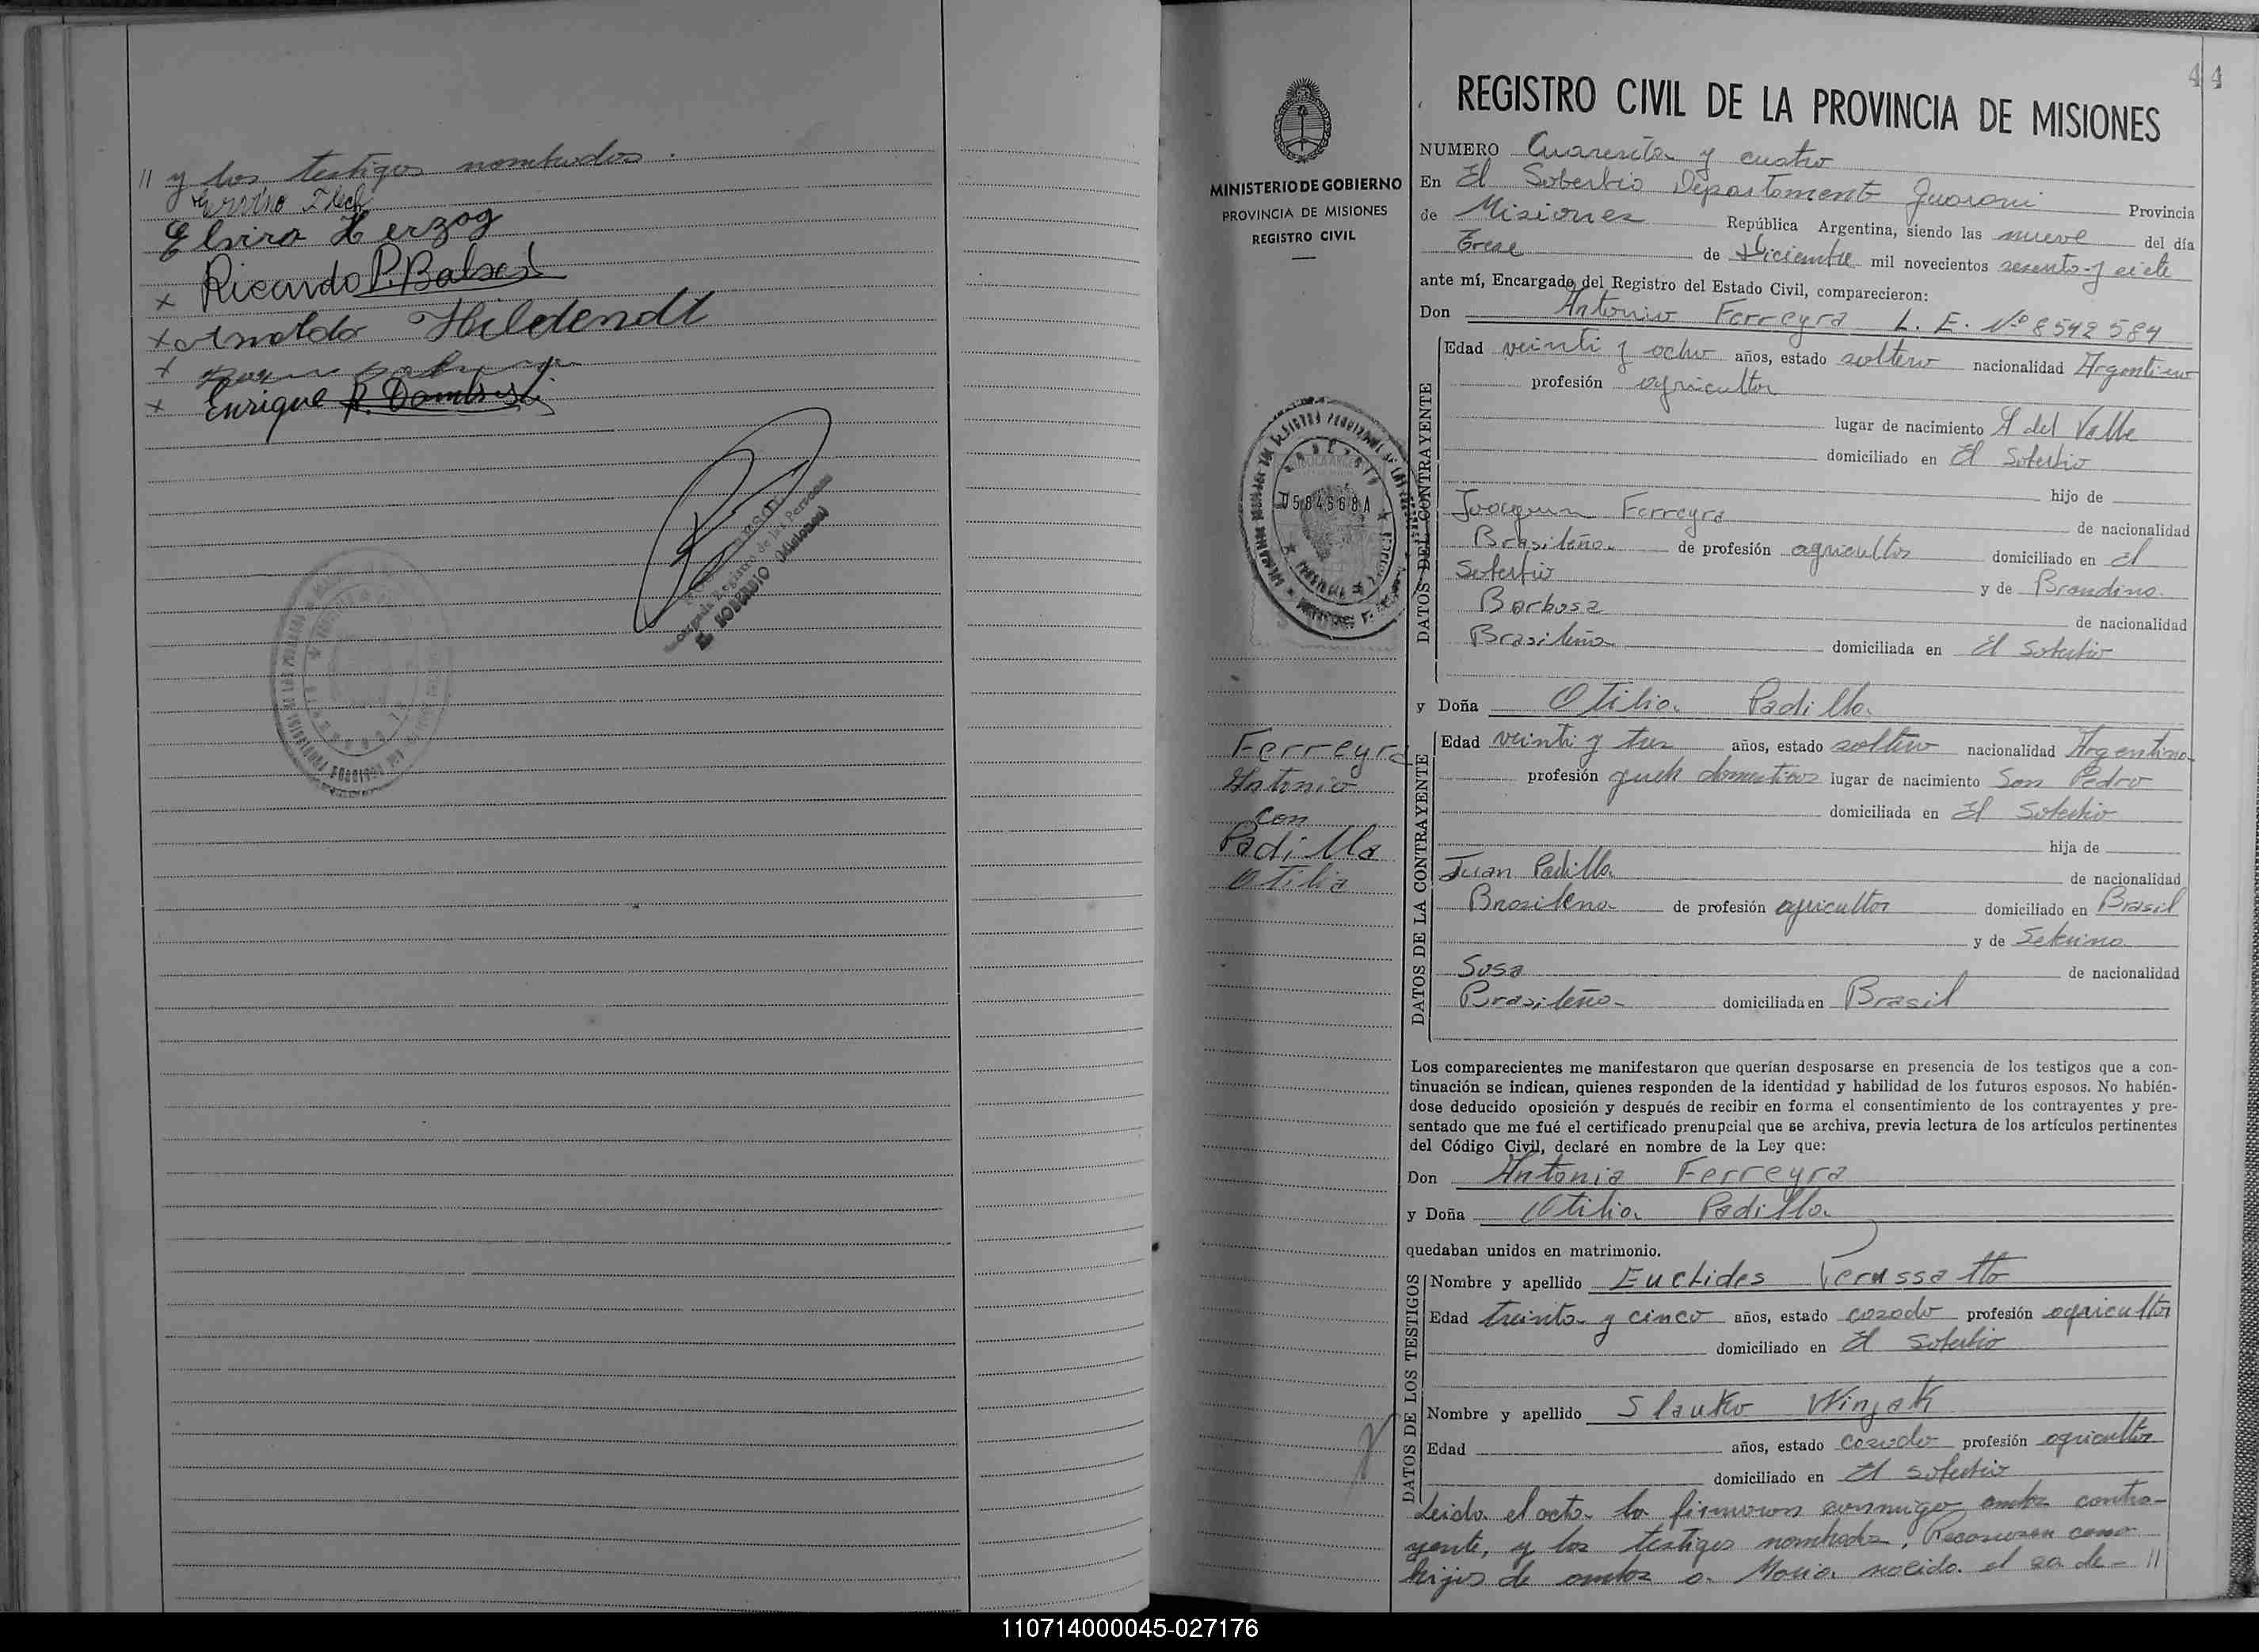 // y los testigos nombrados.
Elvira Herzog
x Ricardo P. Balses
x Arnoldo Hildendt
x
x Enrique R. Dombrski
Registro de las Personas
EL SOBERBIO (Misiones)
44
MINISTERIO DE GOBIERNO
PROVINCIA DE MISIONES
REGISTRO CIVIL
05845668A
Ferreyra
Antonio
con
Padilla
Otilia
REGISTRO CIVIL DE LA PROVINCIA DE MISIONES
NUMERO Cuarenta y cuatro
En El Soberbio Departamento Guarani Provincia
de Misiones República Argentina, siendo las nueve del día
Trece de Diciembre mil novecientos sesenta y siete
ante mí, Encargado del Registro del Estado Civil, comparecieron:
Don Antonio Ferreyra L. E. Nº 8542584
DATOS DEL CONTRAYENTE
Edad veinti y ocho años, estado soltero nacionalidad Argentino
profesión agricultor
lugar de nacimiento A del Valle
domiciliado en El Soberbio
hijo de
Joaquin Ferreyra de nacionalidad
Brasileña de profesión agricultor domiciliado en El
Soberbio y de Brandina
Barbosa de nacionalidad
Brasileña domiciliada en El Soberbio
y Doña Otilia Padilla
DATOS DE LA CONTRAYENTE
Edad veinti y tres años, estado soltera nacionalidad Argentina
profesión queh domesticos lugar de nacimiento San Pedro
domiciliada en El Soberbio
hija de
Juan Padilla de nacionalidad
Brasilena de profesión agricultor domiciliado en Brasil
y de
Sosa de nacionalidad
Brasileña domiciliada en Brasil
Los comparecientes me manifestaron que querían desposarse en presencia de los testigos que a con-
tinuación se indican, quienes responden de la identidad y habilidad de los futuros esposos. No habién-
dose deducido oposición y después de recibir en forma el consentimiento de los contrayentes y pre-
sentado que me fué el certificado prenupcial que se archiva, previa lectura de los artículos pertinentes
del Código Civil, declaré en nombre de la Ley que:
Don Antonio Ferreyra
y Doña Otilia Padilla
quedaban unidos en matrimonio.
DATOS DE LOS TESTIGOS
Nombre y apellido Euclides Perussatto
Edad treinta y cinco años, estado casado profesión agricultor
domiciliado en El Soberbio
Nombre y apellido Slauko Winjak
Edad años, estado casado profesión agricultor
domiciliado en El Soberbio
Leida el acta la firmaron conmigo ambos contra-
yente, y los testigos nombrados. Reconocen como
hijos de ambos a Maria nacida el de - //
110714000045-027176